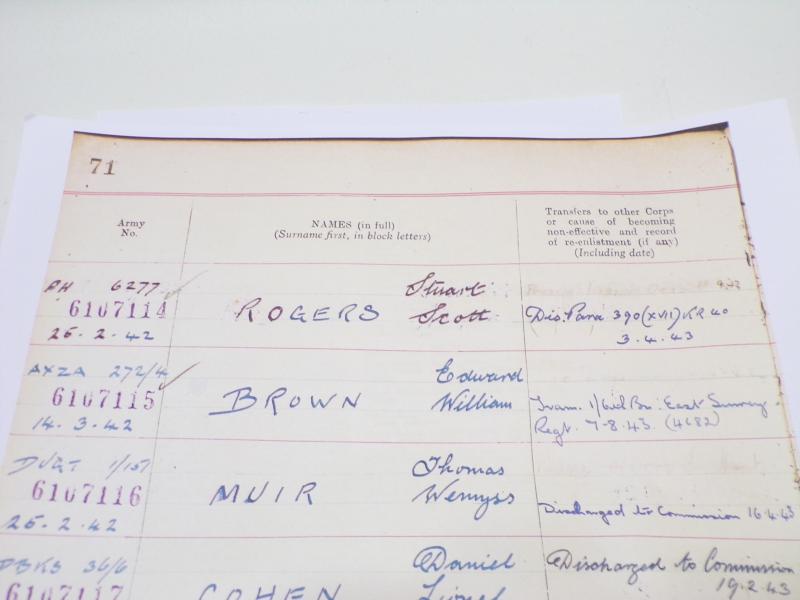 71
Army
No.
NAMES (in full)
(Surname first, in block letters)
Transfers to other Corps
or cause of becoming
non-effective and record
of re-enlistment (if any)
(Including date)
6277
6107114
26.2.42
ROGERS
Stuart
Scott
Dis. Para 390 (XVII) KR 40
3.4.43
AXZA 272/4
6107115
14.3.42
BROWN
Edward
William
Tran. East Surrey
Regt. 7-8-43. (4682)
6107116
26.2.42
MUIR
Thomas
Wemyss
Discharged to Commission 16.4.43
36/6
6107117
COHEN
Daniel
Lionel
Discharged to Commission
19.2.43